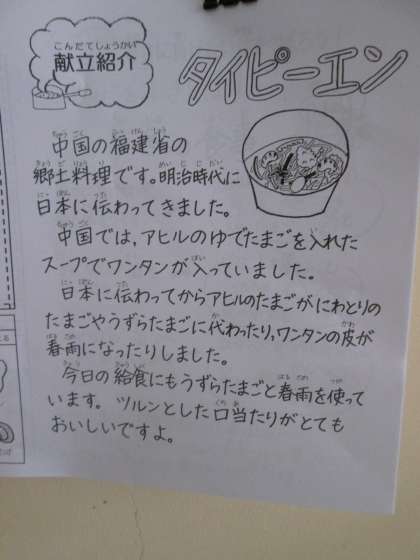 こんだてしょうかい
献立紹介
タイピーエン
中国の福建省の
郷土料理です。明治時代に
日本に伝わってきました。
中国では,アヒルのゆでたまごを入れた
スープでワンタンが入っていました。
日本に伝わってからアヒルのたまごがにわとりの
たまごやうずらたまごに代わったり,ワンタンの皮が
春雨になったりしました。
今日の給食にもうずらたまごと春雨を使って
います。ツルンとした口当たりがとても
おいしいですよ。